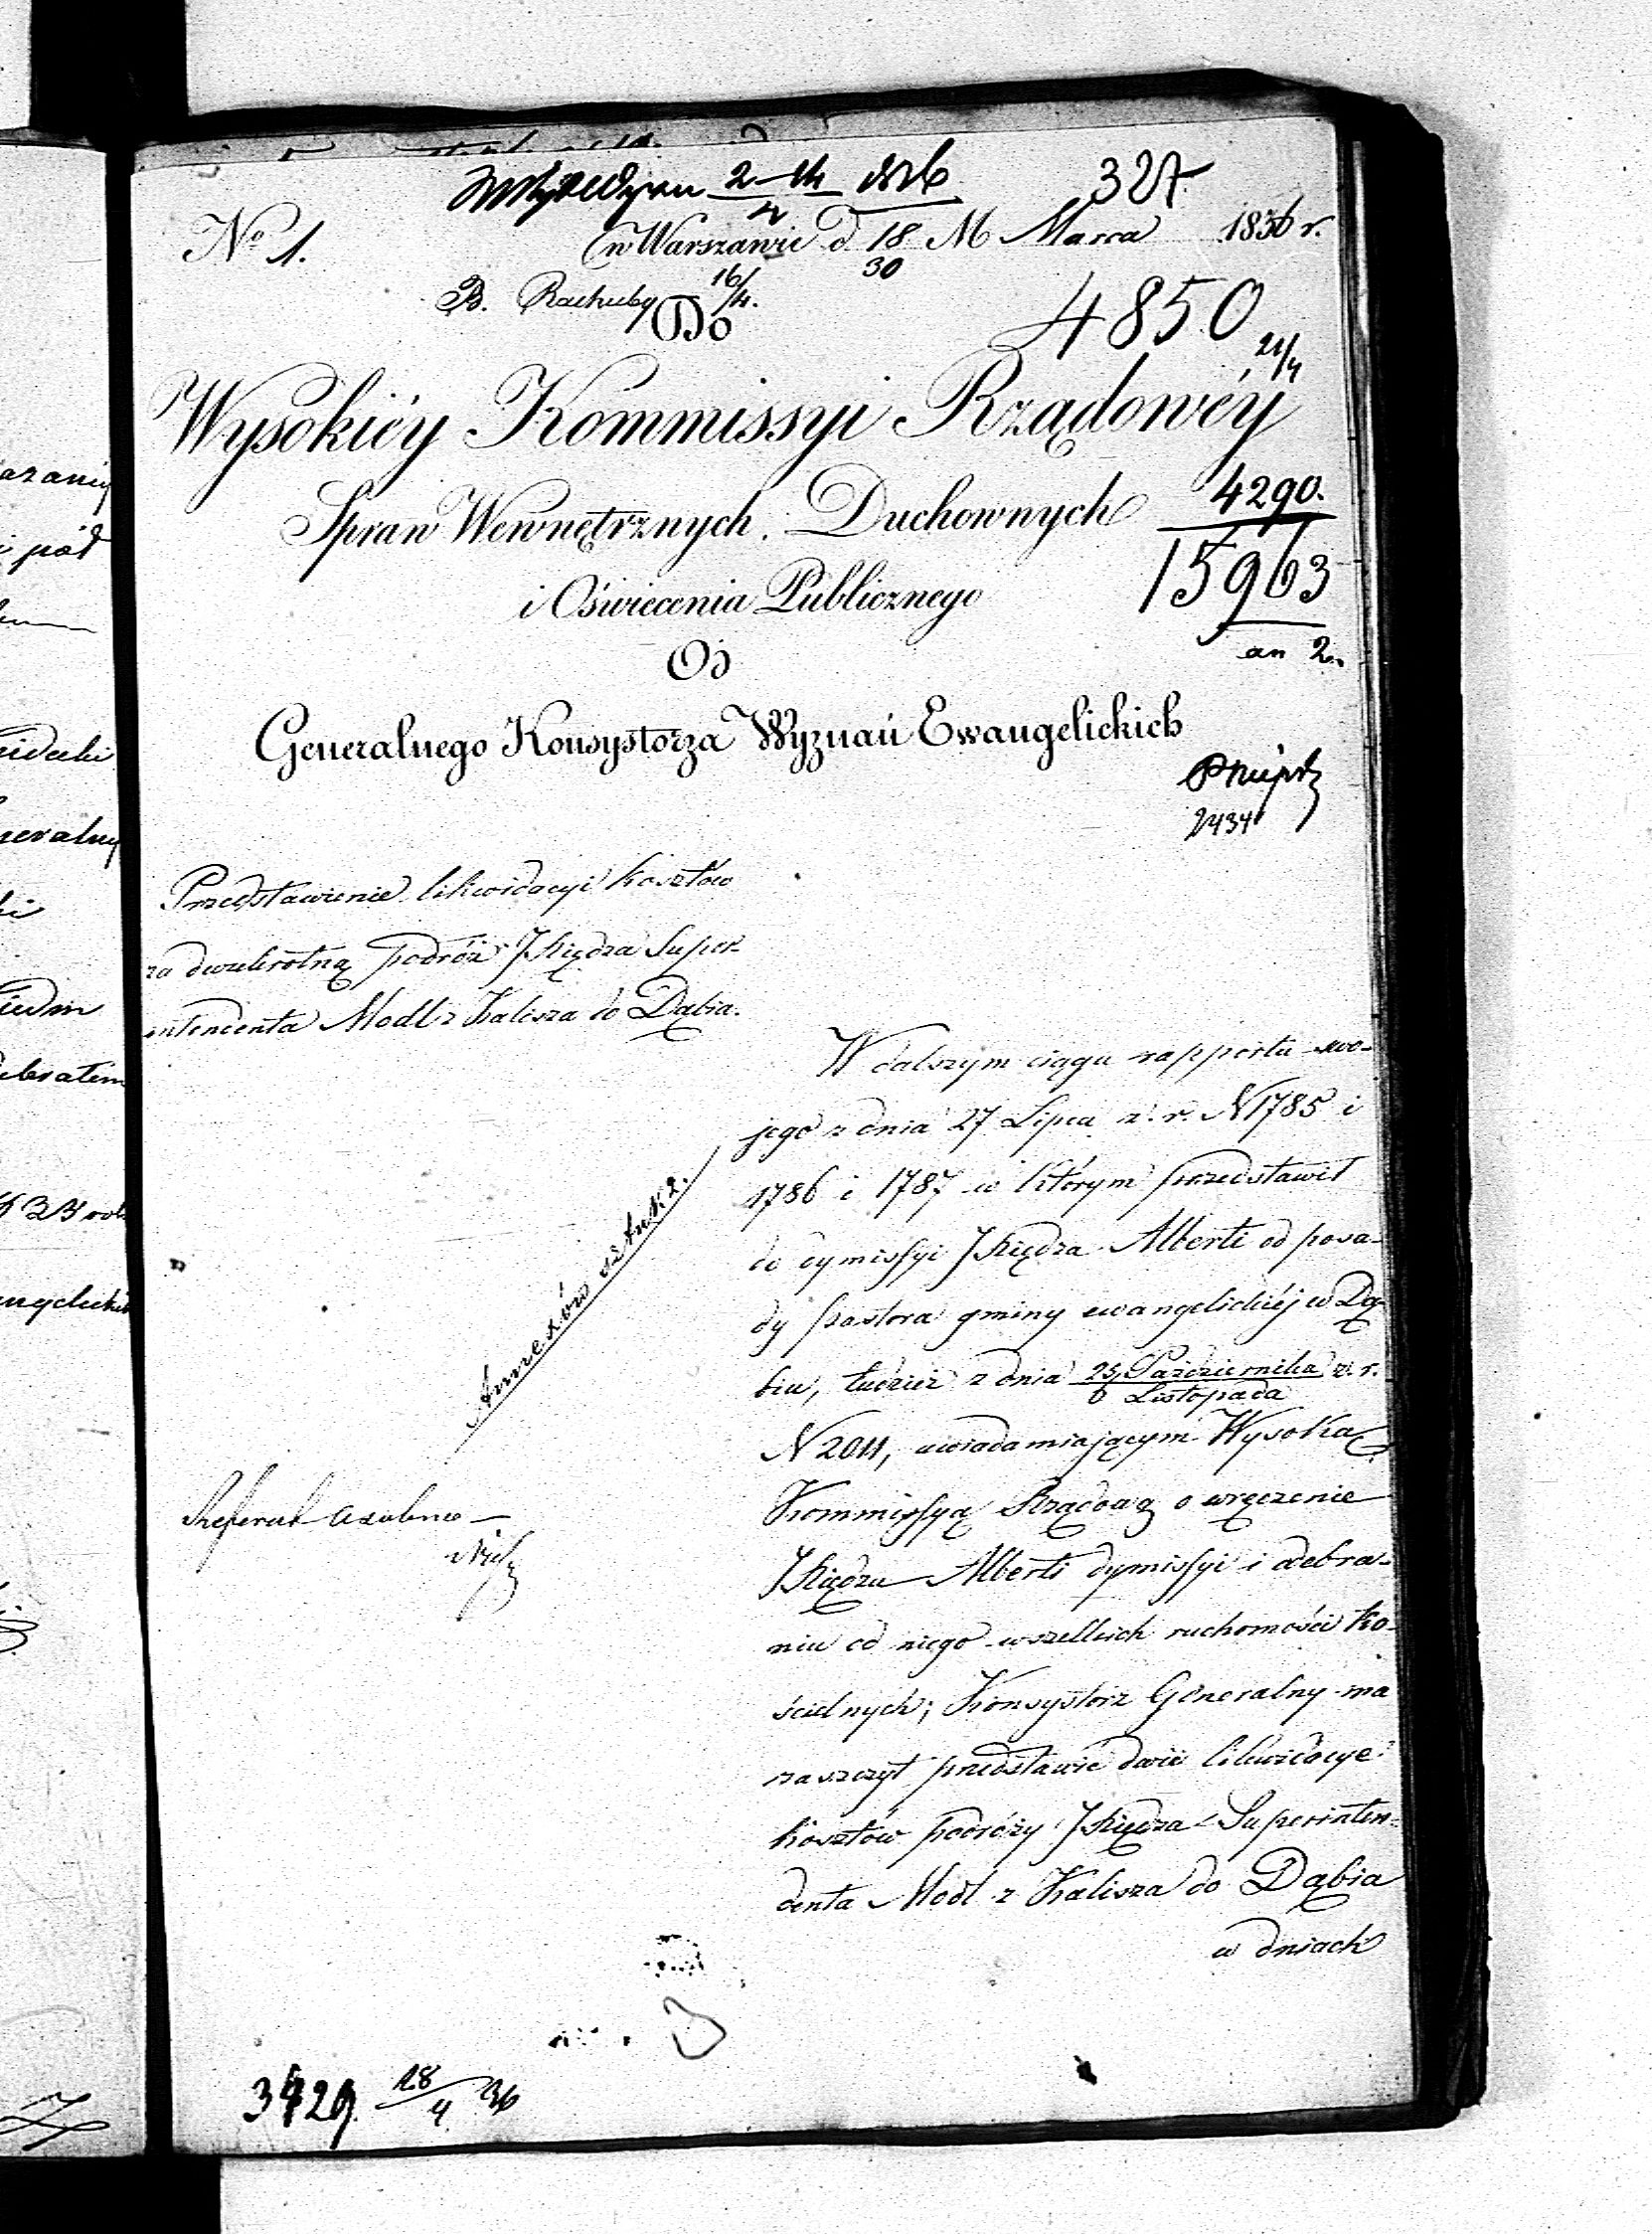 327.
No 1.
w Warszawie d. 18/30 M Marca 1836 r.
B. Rachuby 16/4.
Do
4850
21/4
Wysokiéy Kommissyi Rządowéy
Spraw Wewnętrznych, Duchownych
4290.
15963
i Oświecenia Publicznego
an 2.
Od
Generalnego Konsystorza Wyznań Ewangelickich
2434
Przedstawienie likwidacyi kosztów
za dwukrotną podróż JXiędza Super-
intendenta Modl z Kalisza do Dąbia.
W dalszym ciągu rapportu swo-
jego z dnia 27 Lipca z. r. N 1785 i
1786 i 1787 w którym przedstawił
do dymissyi JXiędza Alberti od posa-
dy pastora gminy ewangelickiéj w Dą-
biu, tudzież z dnia 25 Października/6 Listopada z. r.
N 2011, uwiadamiającym Wysoką
Kommissyą Rządową o wręczenie
JXiędzu Alberti dymissyi i odebra-
niu od niego wszelkich ruchomości ko-
ścielnych; Konsystorz Generalny ma
zaszczyt przedstawić dwie likwidacye
kosztów podróży JXiędza Superinten-
denta Modl z Kalisza do Dąbia
w dniach
Annexów sztuk 2.
Referat osobno
3429. 18/4 36